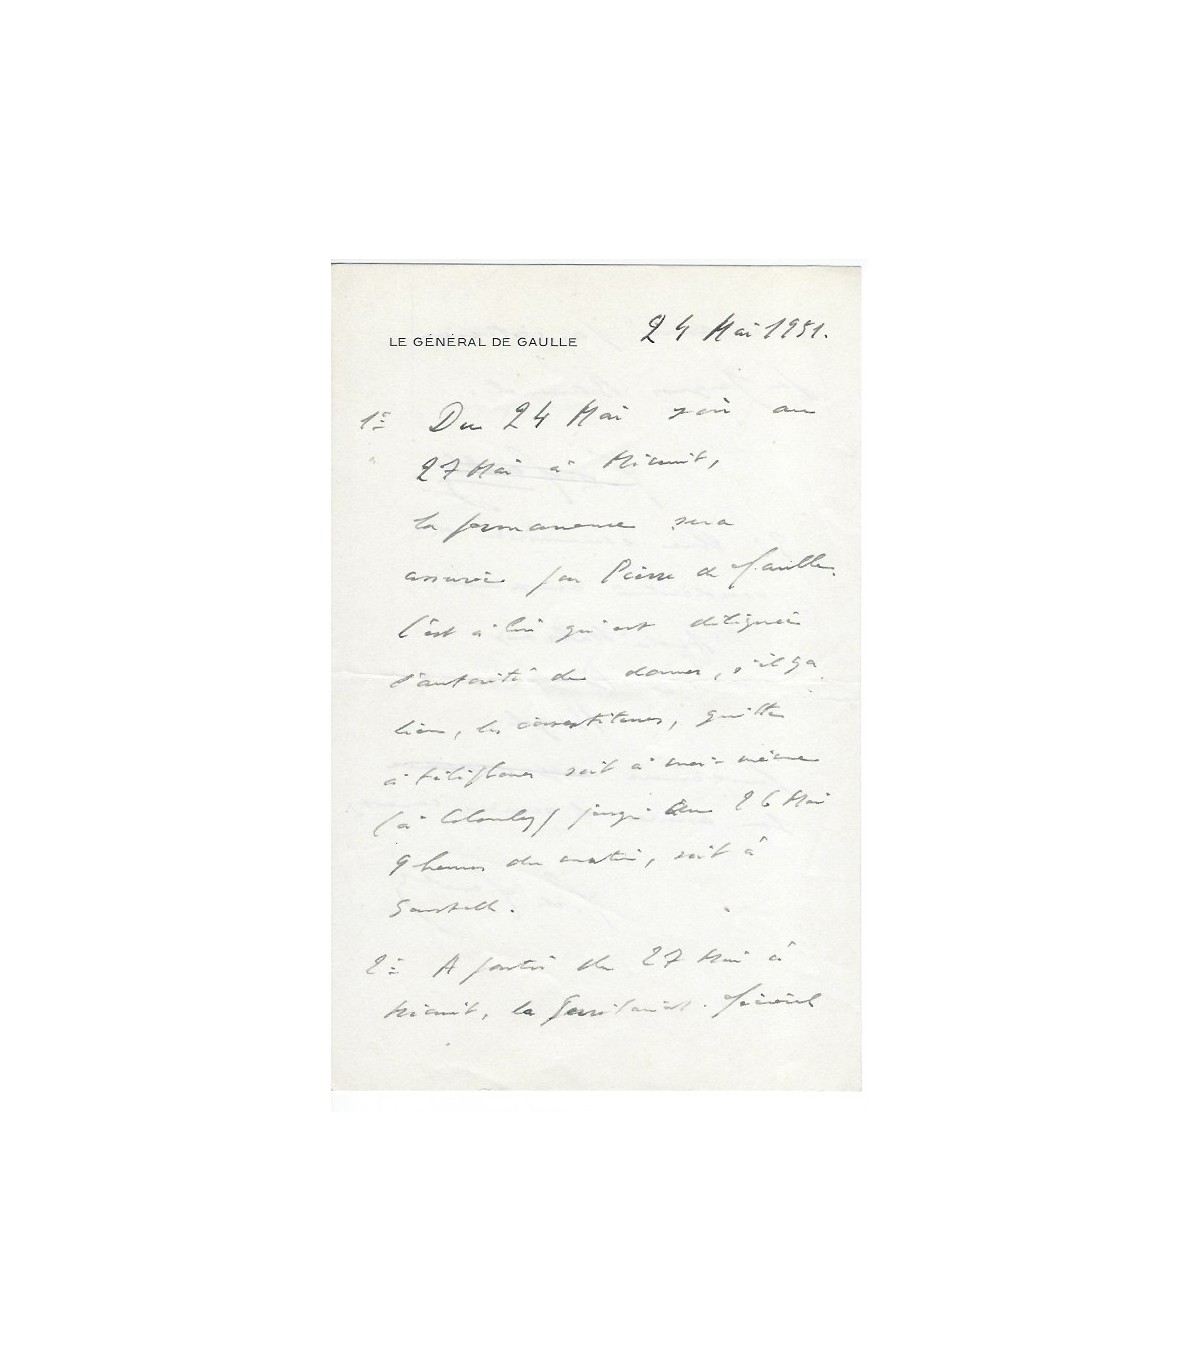 LE GÉNÉRAL DE GAULLE
24 Mai 1951.
1° Du 24 Mai soir au
27 Mai à Minuit,
la permanence sera
assurée par Pierre de Gaulle.
C'est à lui qu'est déléguée
l'autorité de donner, s'il y a
lieu, les investitures, quitte
à téléphoner soit à moi-même
(à Colombey) jusqu'au 26 Mai
9 heures du matin, soit à
Soustelle.
2° A partir du 27 Mai à
Minuit, le Secrétariat Général